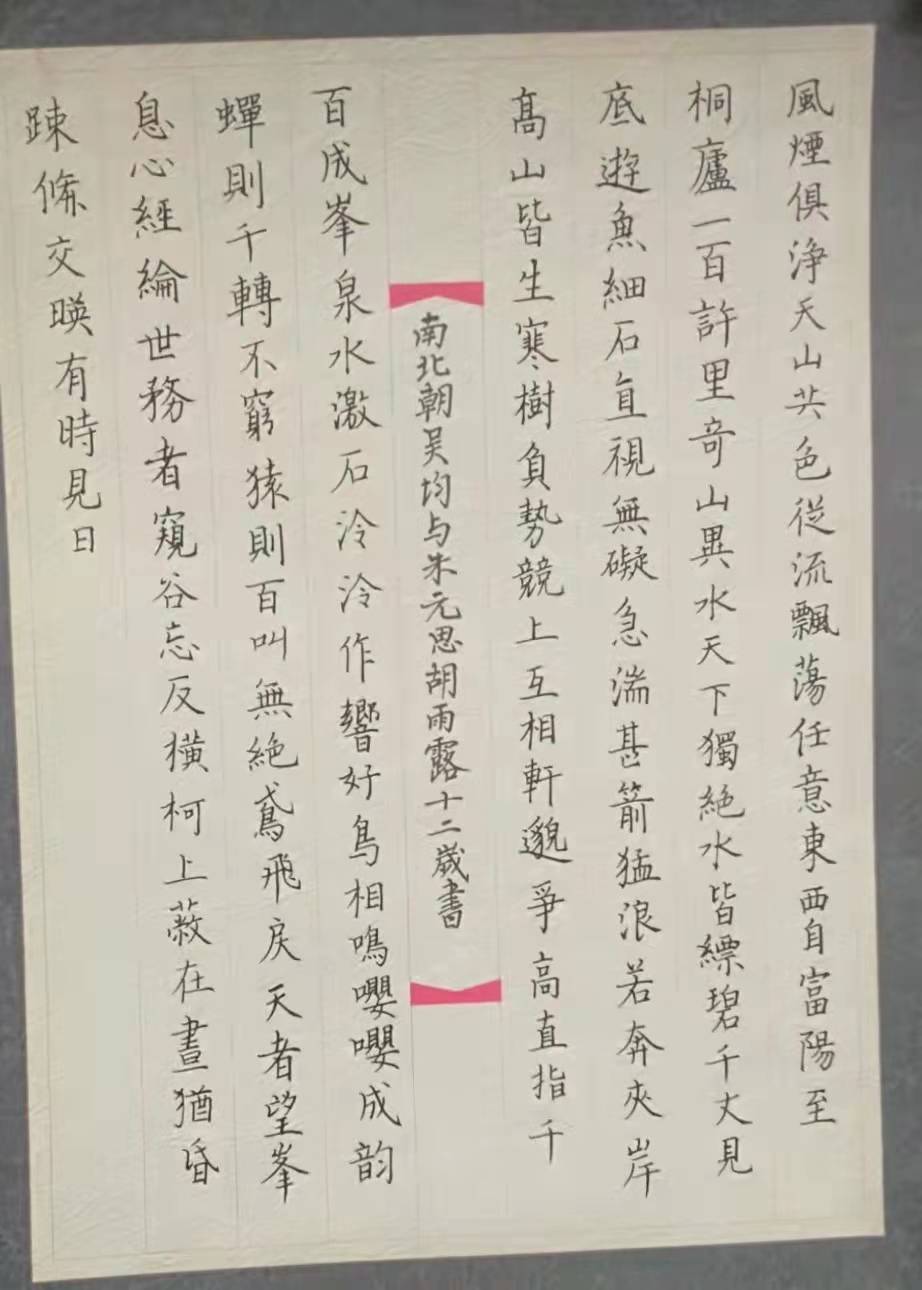 風煙俱淨天山共色從流飄蕩任意東西自富陽至
桐廬一百許里奇山異水天下獨絶水皆縹碧千丈見
底遊魚細石直視無礙急湍甚箭猛浪若奔夾岸
高山皆生寒樹負勢競上互相軒邈爭高直指千
南北朝吴均与朱元思胡雨露十二歲書
百成峯泉水激石泠泠作響好鳥相鳴嚶嚶成韵
蟬則千轉不窮猿則百叫無絶鳶飛戾天者望峯
息心經綸世務者窺谷忘反橫柯上蔽在晝猶昏
踈條交暎有時見日